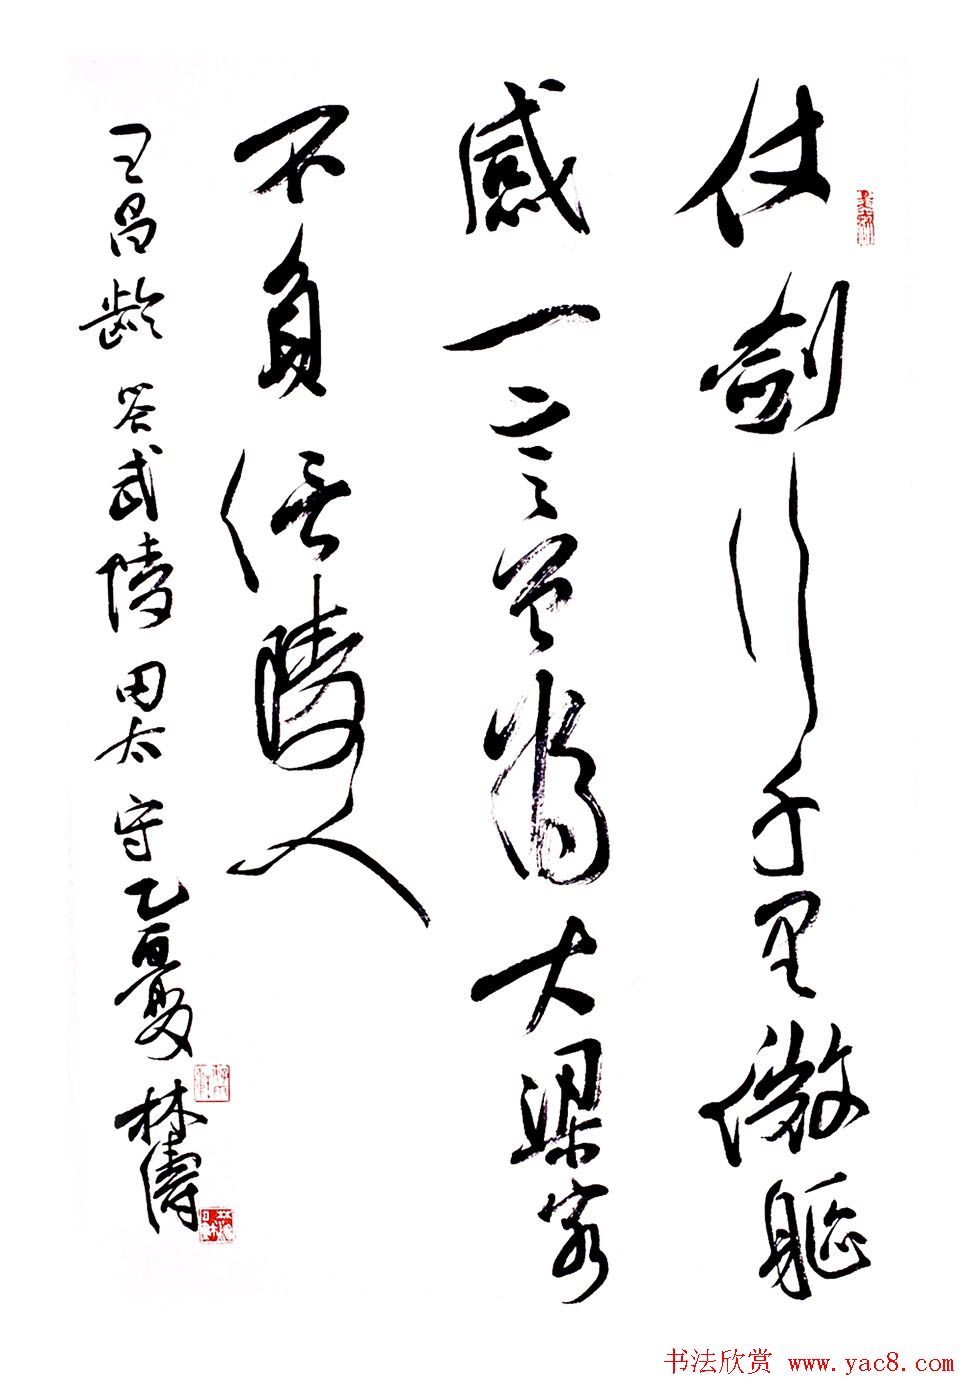 仗劍行千里微軀
感一言曾為大梁客
不負信陵人
王昌齡答武陵田太守乙酉夏林濤
书法欣赏 www.yac8.com